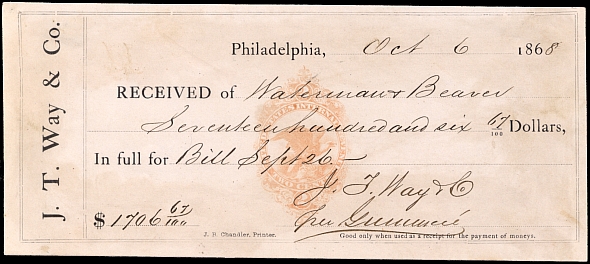 J. T. Way & Co.
Philadelphia, Oct 6 1868
RECEIVED of Waterman & Beaver
Seventeen hundred and six 67/100 Dollars,
In full for Bill Sept 26 —
J. T. Way & Co
$ 1706 67/100 per
J. B. Chandler, Printer. Good only when used as a receipt for the payment of moneys.